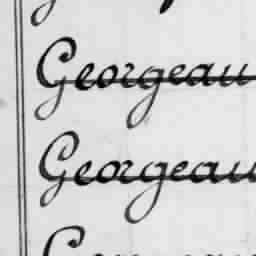 Georgeau
Georgeau